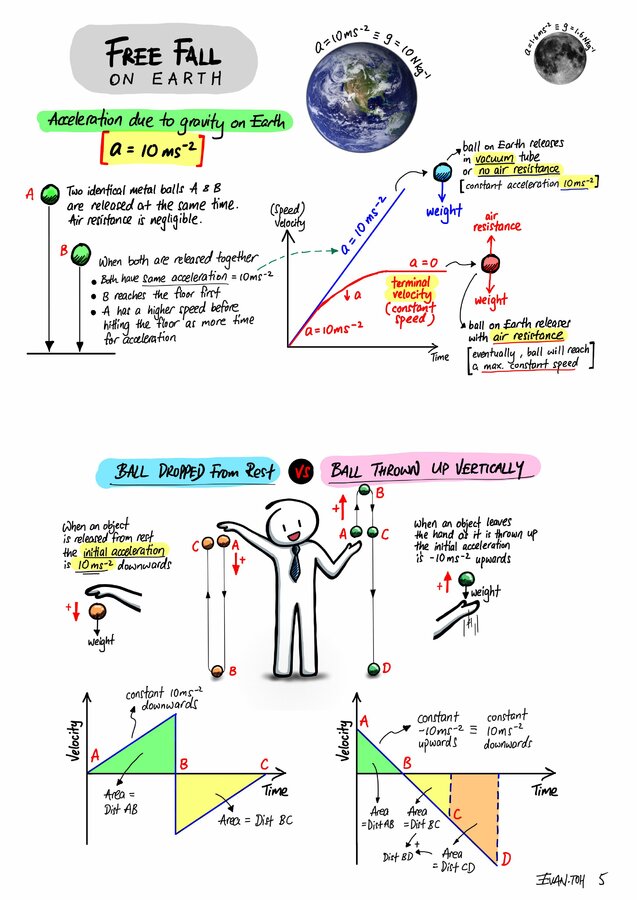 FREE FALL
ON EARTH
a = 10 ms⁻² ≡ g = 10 Nkg⁻¹
a = 1.6 ms⁻² ≡ g = 1.6 Nkg⁻¹
Acceleration due to gravity on Earth
[a = 10 ms⁻²]
A
Two identical metal balls A & B
are released at the same time.
Air resistance is negligible.
B
When both are released together
• Both have same acceleration = 10 ms⁻²
• B reaches the floor first
• A has a higher speed before
hitting the floor as more time
for acceleration
(Speed)
Velocity
a = 10 ms⁻²
a = 0
terminal
velocity
(constant
speed)
↓ a
a = 10 ms⁻²
Time
ball on Earth releases
in vacuum tube
or no air resistance
[constant acceleration 10 ms⁻²]
weight
air
resistance
weight
ball on Earth releases
with air resistance
[eventually, ball will reach
a max. constant speed]
BALL DROPPED From Rest
VS
BALL THROWN UP VERTICALLY
When an object
is released from rest
the initial acceleration
is 10 ms⁻² downwards
+
weight
C
A
+
B
+
B
A
C
D
When an object leaves
the hand as it is thrown up
the initial acceleration
is -10 ms⁻² upwards
+
weight
Velocity
constant 10 ms⁻²
downwards
A
B
C
Time
Area =
Dist AB
Area = Dist BC
Velocity
A
constant
-10 ms⁻²
upwards
≡
constant
10 ms⁻²
downwards
B
Time
Area
= Dist AB
Area
= Dist BC
C
+
Dist BD
Area
= Dist CD
D
EVAN.TOH 5